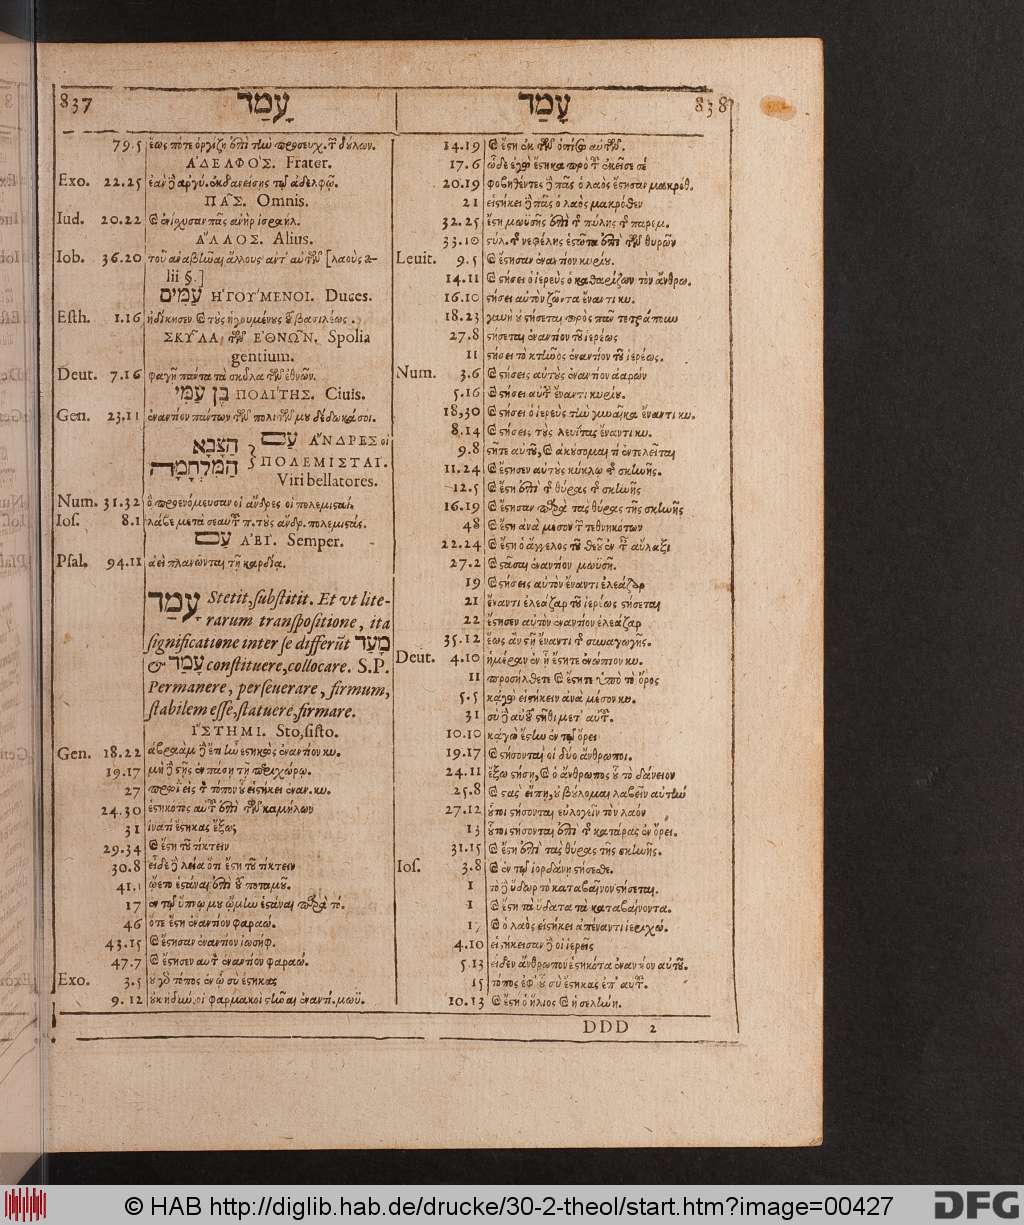 837 עָמַד
79.5 ἕως πότε ὀργίζῃ ἐπὶ τὴν προσευχ. τ͂ δούλων.
ἈΔΕΛΦΟΣ. Frater.
Exo. 22.25 ἐὰν ἀργύ. ἐκδανείσῃς τῷ ἀδελφῷ.
ΠΑΣ. Omnis.
Iud. 20.22 ἐνίσχυσαν πᾶς ἀνὴρ ἰσραήλ.
ἌΛΛΟΣ. Alius.
Iob. 36.20 τοῦ ἀναβῆναι ἄλλους ἀντ' αὐτῶν [λαοὺς a-
lii §.]
עַמִּים ΗΓΟΥΜΕΝΟΙ. Duces.
Esth. 1.16 ἠδίκησεν τοὺς ἡγουμένους βασιλέως.
ΣΚΥΛΑ τῶν ΕΘΝΩΝ. Spolia
gentium.
Deut. 7.16 φαγῇ πάντα τὰ σκῦλα τῶν ἐθνῶν.
בֶּן עַמִּי ΠΟΛΙΤΗΣ. Ciuis.
Gen. 23.11 ἐναντίον πάντων τῶν πολιτῶν μου δέδωκά σοι.
עַם הַצָּבָא ἌΝΔΡΕΣ οἱ
הַמִּלְחָמָה ΠΟΛΕΜΙΣΤΑΙ.
Viri bellatores.
Num. 31.32 ὃ προενόμευσαν οἱ ἄνδρες οἱ πολεμισταί.
Ios. 8.1 λάβε μετὰ σεαυτ π. τοὺς ἄνδρ. πολεμιστάς.
עַם ἈΕΙ. Semper.
Psal. 94.11 ἀεὶ πλανῶνται τῇ καρδίᾳ.
עָמַד Stetit, substitit. Et vt lite-
rarum transpositione, ita
significatione inter se differũt מָעַד
& עָמַד constituere, collocare. S.P.
Permanere, perseuerare, firmum,
stabilem esse, statuere, firmare.
ἽΣΤΗΜΙ. Sto, sisto.
Gen. 18.22 ἀβραὰμ ἔτι ἦν ἑστηκὼς ἐναντίον κυ.
19.17 μὴ στῇς ἐν πάσῃ τῇ περιχώρῳ.
27 πρωῒ εἰς τ τόπον οὗ εἱστήκει ἐναν. κυ.
24.30 ἑστηκότος αὐτ ἐπὶ τῶν καμήλων
31 ἱνατί ἕστηκας ἔξω;
29.34 ἔστη τοῦ τίκτειν
30.8 εἶδε λεία ὅτι ἔστη τοῦ τίκτειν
41.1 ᾤετο ἑστάναι ἐπὶ ποταμοῦ.
17 ἐν τῷ ὕπνῳ μου ᾤμην ἑστάναι παρὰ τό.
46 ὅτε ἔστη ἐναντίον φαραώ.
43.15 ἔστησαν ἐναντίον ἰωσήφ.
47.7 ἔστησεν αὐτ ἐναντίον φαραώ.
Exo. 3.5 ὁ τόπος ἐν ᾧ σὺ ἕστηκας
9.12 οὐκ ἠδύν. οἱ φαρμακοὶ στῆναι ἐναντί. μωϋ.
עָמַד 838
14.19 ἔστη ἐκ τῶν ὀπίσω αὐτῶν.
17.6 ὧδε ἐγὼ ἕστηκα πρὸ τ ἐκεῖσε σέ
20.19 φοβηθέντες πᾶς ὁ λαὸς ἔστησαν μακρόθ.
21 εἱστήκει πᾶς ὁ λαὸς μακρόθεν
32.25 ἔστη μωϋσῆς ἐπὶ τ πύλης τ παρεμ.
33.10 στύλ. τ νεφέλης ἑστῶτα ἐπὶ τῶν θυρῶν
Leuit. 9.5 ἔστησαν ἐναντίον κυρίου.
14.11 στήσει ὁ ἱερεὺς ὁ καθαρίζων τὸν ἄνθρω.
16.10 στήσει αὐτὸν ζῶντα ἔναντι κυ.
18.23 γυνὴ οὐ στήσεται πρὸς πᾶν τετράπουν
27.8 στήσεται ἐναντίον τοῦ ἱερέως
11 στήσει τὸ κτῆνος ἐναντίον τοῦ ἱερέως.
Num. 3.6 στήσεις αὐτοὺς ἐναντίον ἀαρών
5.16 στήσει αὐτ ἔναντι κυρίου.
18,30 στήσει ὁ ἱερεὺς τὴν γυναῖκα ἔναντι κυ.
8.14 στήσεις τοὺς λευίτας ἔναντι κυ.
9.8 στῆτε αὐτοῦ, ἀκούσομαι τί ἐντελεῖται
11.24 ἔστησεν αὐτοὺς κύκλῳ τ σκηνῆς.
12.5 ἔστη ἐπὶ τ θύρας τ σκηνῆς
16.19 ἔστησαν παρὰ τὰς θύρας τῆς σκηνῆς
48 ἔστη ἀνὰ μέσον τ τεθνηκότων
22.24 ἔστη ὁ ἄγγελος τοῦ θεοῦ ἐν τ αὔλαξι
27.2 στᾶσαι ἐναντίον μωϋσῆ.
19 στήσεις αὐτὸν ἔναντι ἐλεάζαρ
21 ἔναντι ἐλεάζαρ τοῦ ἱερέως στήσεται
22 ἔστησεν αὐτὸν ἐναντίον ἐλεάζαρ
35.12 ἕως ἂν στῇ ἔναντι τ συναγωγῆς.
Deut. 4.10 ἡμέραν ἐν ᾗ ἔστητε ἐνώπιον κυ.
11 προσήλθετε ἔστητε ὑπὸ τὸ ὄρος
5.5 κἀγὼ εἱστήκειν ἀνὰ μέσον κυ.
31 σὺ αὐτοῦ στῆθι μετ' αὐτ.
10.10 κἀγὼ ἔστην ἐν τῷ ὄρει
19.17 στήσονται οἱ δύο ἄνθρωποι.
24.11 ἔξω στήσῃ, ὁ ἄνθρωπος οὗ τὸ δάνειον
25.8 στὰς εἴπῃ, οὐ βούλομαι λαβεῖν αὐτήν
27.12 οὗτοι στήσονται εὐλογεῖν τὸν λαόν
13 οὗτοι στήσονται ἐπὶ τ κατάρας ἐν ὄρει.
31.15 ἔστη ἐπὶ τὰς θύρας τῆς σκηνῆς.
Ios. 3.8 ἐν τῷ ἰορδάνῃ στήσεσθε.
1 τὸ ὕδωρ τὸ καταβαῖνον στήσεται.
1 ἔστη τὰ ὕδατα τὰ καταβαίνοντα.
17 ὁ λαὸς εἱστήκει ἀπέναντι ἱεριχώ.
4.10 εἱστήκεισαν οἱ ἱερεῖς
5.13 εἶδεν ἄνθρωπον ἑστηκότα ἐναντίον αὐτοῦ.
15 τόπος ἐφ' ᾧ σὺ ἕστηκας ἐπ' αὐτ.
10.13 ἔστη ὁ ἥλιος ἡ σελήνη.
DDD 2
© HAB http://diglib.hab.de/drucke/30-2-theol/start.htm?image=00427
DFG